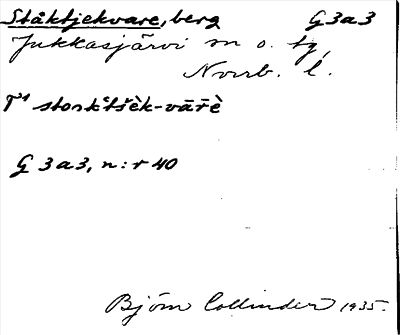 Ståktjekvare, berg G 3 a 3
Jukkasjärvi sn o. tg,
Norrb. l.
G 3 a 3, n:r 40
Björn Collinder 1935.